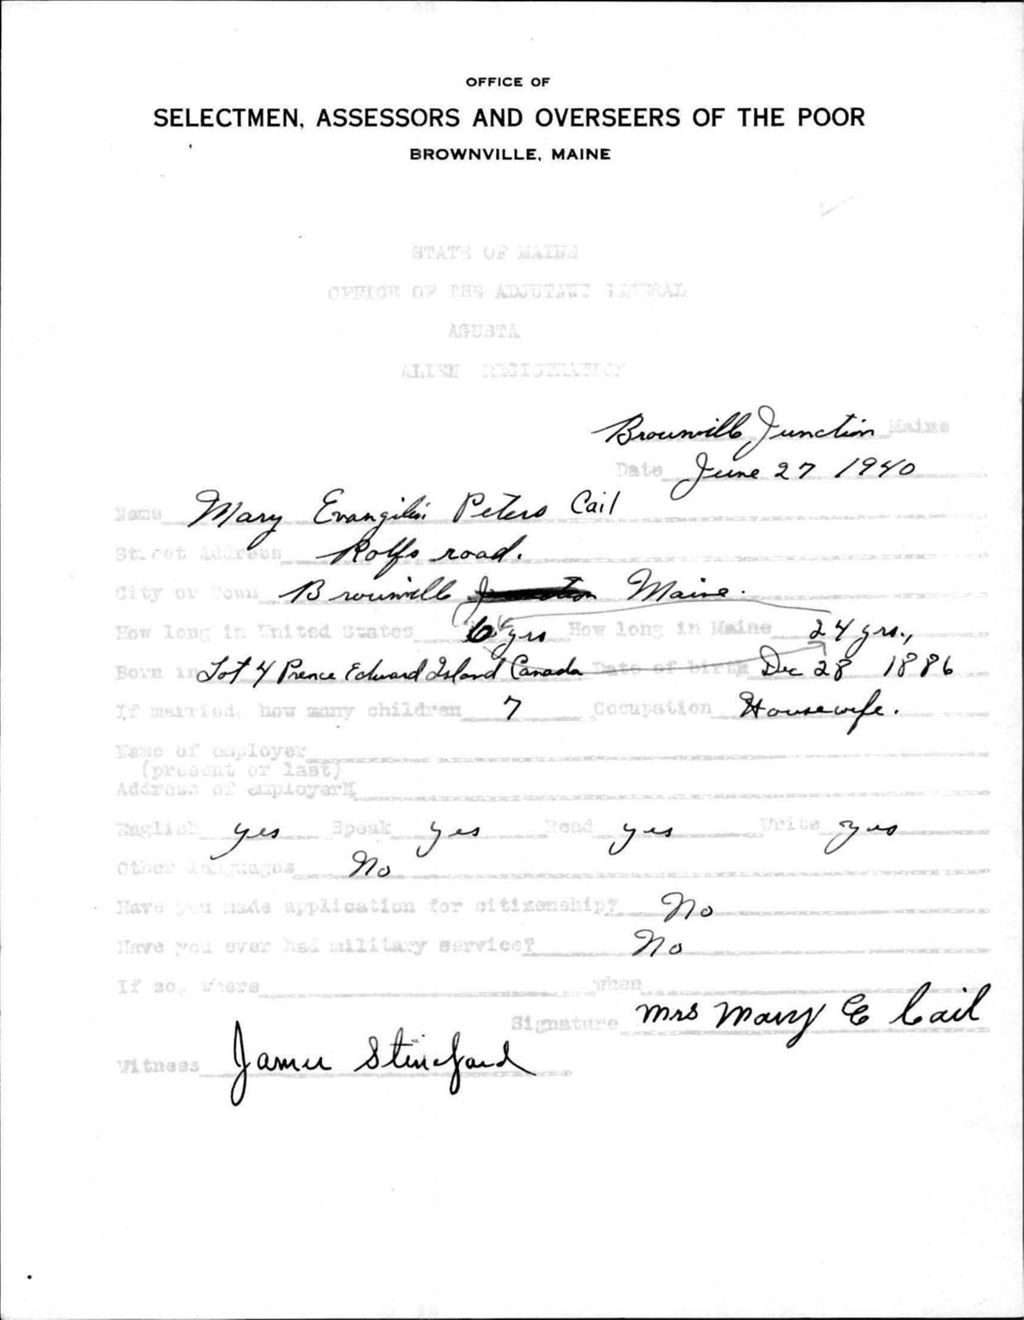 OFFICE OF
SELECTMEN, ASSESSORS AND OVERSEERS OF THE POOR
BROWNVILLE, MAINE
STATE OF MAINE
OFFICE OF THE ADJUTANT GENERAL
AGUSTA
ALIEN REGISTRATION
Brownville Junction Maine
Date June 27 1940
Name Mary Evangilin Peters Cail
Street Address Rolfs road.
City or Town Brownville Junction Maine.
How long in United States yrs How long in Maine 24 yrs.,
Born in Lot 4 Prence Edward Island Canada Date of birth Dec 28 1886
If married, how many children 7 Occupation Housewife.
Name of employer
(present or last)
Address of employer
English yes Speak yes Read yes Write yes
Other languages No
Have you made application for citizenship? No
Have you ever had military service? No
If so, where when
Signature Mrs Mary E Cail
Witness James Stinchfard